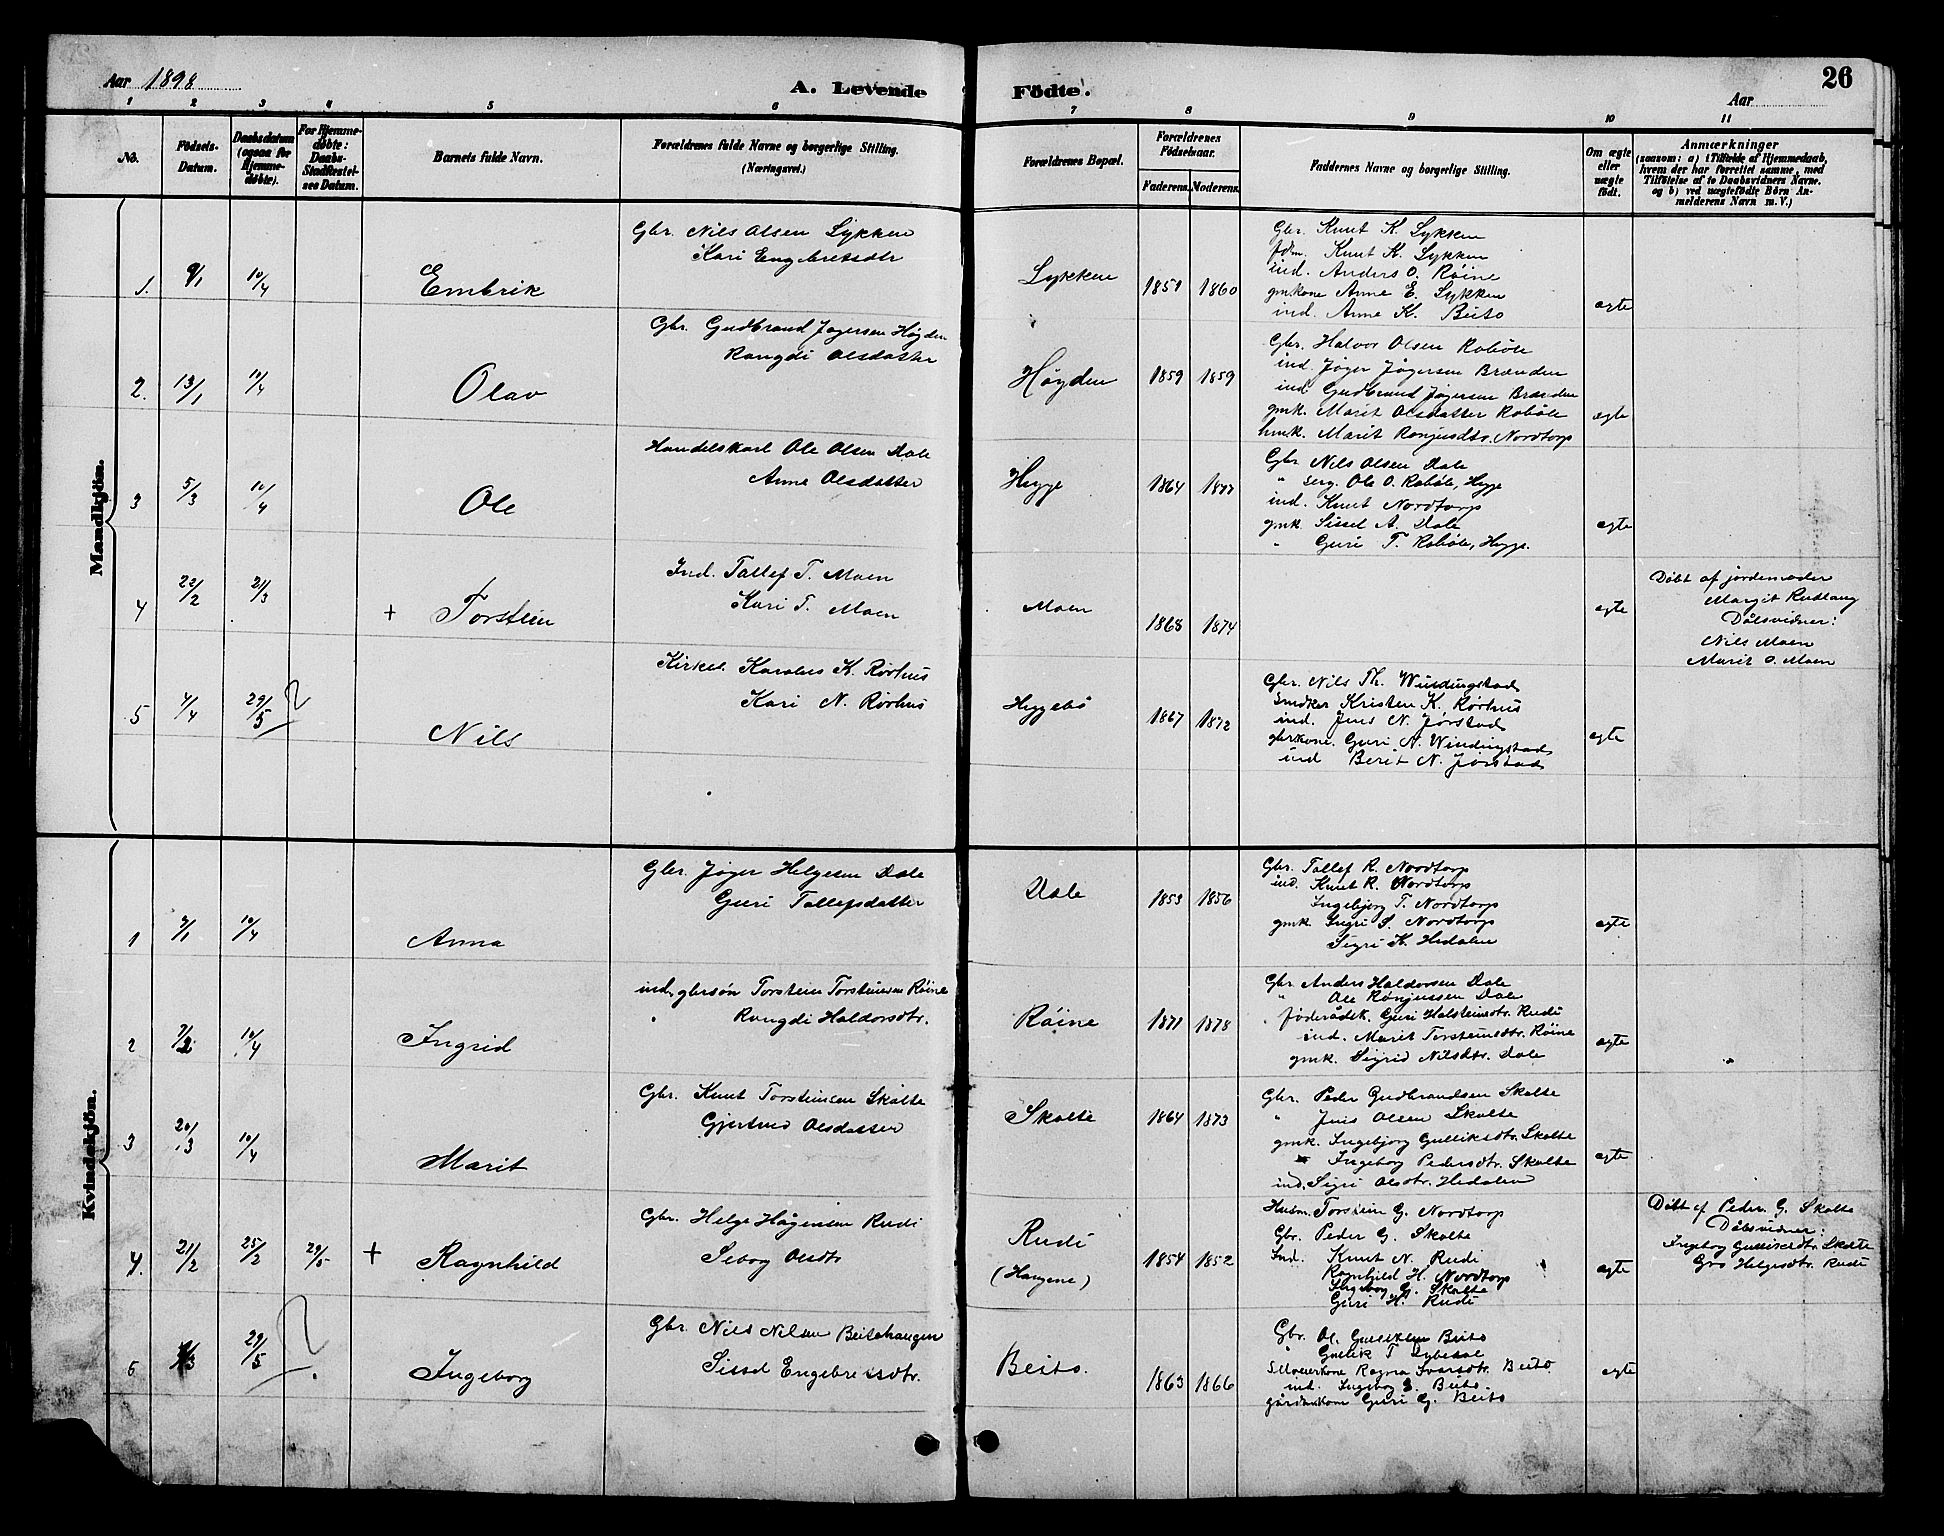 Aar 1898
A. Levende Födte.
Aar
26
1 2 3 4 5 6 7 8 9 10 11
No.
Födsels-Datum.
Daabsdatum (ogsaa for Hjemme-döbte).
For Hjemme-döbte: Daabs-Stadfæstelses Datum.
Barnets fulde Navn.
Forældrenes fulde Navne og borgerlige Stilling. (Næringsvei.)
Forældrenes Bopæl.
Forældrenes Födselsaar.
Faderens. Moderens.
Faddernes Navne og borgerlige Stilling.
Om ægte eller uægte födt.
Anmærkninger
(saasom: a) i Tilfælde af Hjemmedaab, hvem der har forrettet samme, med Tilföielse af to Daabsvidners Navne. og b) ved uægtefödte Börn Anmelderens Navn m. V.)
Mandkjön.
1. 9/1 10/4 Embrik
Gbr. Nils Olsen Lykken
Kari Engbretsdtr
Lykken 1859 1860
Gbr. Knut K. Lykken
fdm. Knut K. Lykken
ind. Anders O. Röine
gmkone Anne E. Lykken
ind. Anne K. Beito
ægte
2. 13/1 10/4 Olav
Gbr. Gudbrand Jøgersen Høyden
Rangdi Olsdatter
Høyden 1859 1859
Gbr. Halvor Olsen Robøle
ind. Jøger Jøgersen Brænden
ind Gudbrand Jøgersen Brænden
gmk. Marit Olsdatter Robøle
hmk. Marit Ronjusdtr. Nordtorp
ægte
3 5/3 10/4 Ole
Handelskarl Ole Olsen Dale
Anne Olsdatter
Hegge 1864 1877
Gbr Nils Olsen Dale
" serg. Ole O. Robøle, Hegge
ind. Knut Nordtorp
gmk Sissel A. Dale
" Guri T. Robøle, Hegge.
ægte
4 22/2 21/3 + Torstein
Ind. Tallef T. Moen
Kari T. Moen
Moen 1868 1874
ægte
Döbt af jordemoder
Margit Rudlang
Dåbsvidner:
Nils Moen
Marit O. Moen
5 4/4 29/5 ? Nils
Kirkes. Karolus K. Rørhus
Kari N. Rørhus
Heggebö 1867 1872
Gbr. Nils Th. Windingstad
Snedker Kristen K. Rørhus
ind. Jens N. Jørstad
gbrkone. Guri N. Windingstad
ind Berit N. Jørstad
ægte
Kvindekjön.
1 7/1 10/4 Anna
Gbr. Jøger Helgesen Dale
Guri Tallefsdatter
Dale 1853 1856
Gbr. Tallef R. Nordtorp
ind. Knut R. Nordtorp
Ingebjørg T. Nordtorp
gmk. Ingri S. Nordtorp
Sigri K. Hedalen
ægte
2 7/2 10/4 Ingrid
ind. gbrsön Torstein Torsteinsen Röine
" Rangdi Haldorsdtr.
Röine 1871 1878
Gbr Anders Haldorsen Dale
" Ole Rönjussen Dale
" föderådsk. Guri Halsteinsdtr. Rudi
ind. Marit Torsteinsdtr. Röine
gmk. Sigrid Nilsdtr. Dale
ægte
3 20/3 10/4 Marit
Gbr. Knut Torsteinsen Skolte
Gjertrud Olsdatter
Skolte 1864 1873
Gbr. Peder Gudbrandsen Skolte
" Jens Olsen Skolte
gmk. Ingebjørg Gulliksdtr. Skolte
" Ingeborg Pedersdtr. Skolte
ind. Sigri Olsdtr. Hedalen
ægte
4. 21/2 25/2 29/5 + Ragnhild
Gbr. Helge Hågensen Rudi
Siborg Olsdtr
Rudi
(Haugene) 1854 1852
Husm. Torstein G. Nordtorp
Gbr. Peder G. Skolte
Ind. Knut N. Rudi
Ragnhild H. Nordtorp
Ingeborg G. Skolte
Guri H. Rudi
ægte
Döbt af Peder G. Skolte
Dåbsvidner:
Ingeborg Gulliksdtr. Skolte
Gro Helgesdtr. Rudi
5 /3 29/5 ? Ingeborg
Gbr. Nils Nilsen Beitohaugen
Sissel Engebretsdtr.
Beito. 1863 1866
Gbr. Ol. Gulliksen Beito
" Gullik T
Ragna Ivarsdtr. Beito
ind. Ingeborg Beito.
gårdmkone Guri G. Beito
ægte